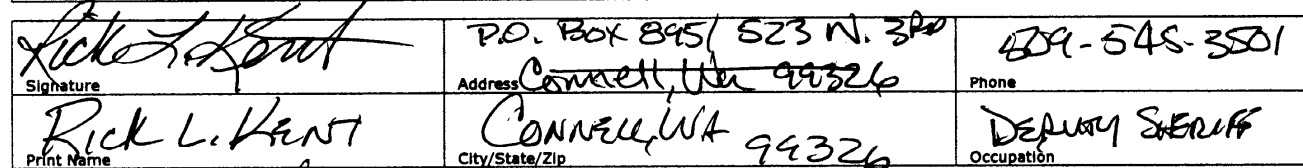 Rick L. Kent P.O. Box 895/ 523 N. 3RD 509-545-3501
Signature Address Connell, Wa 99326 Phone
Rick L. Kent Connell, WA 99326 Deputy Sheriff
Print Name City/State/Zip Occupation